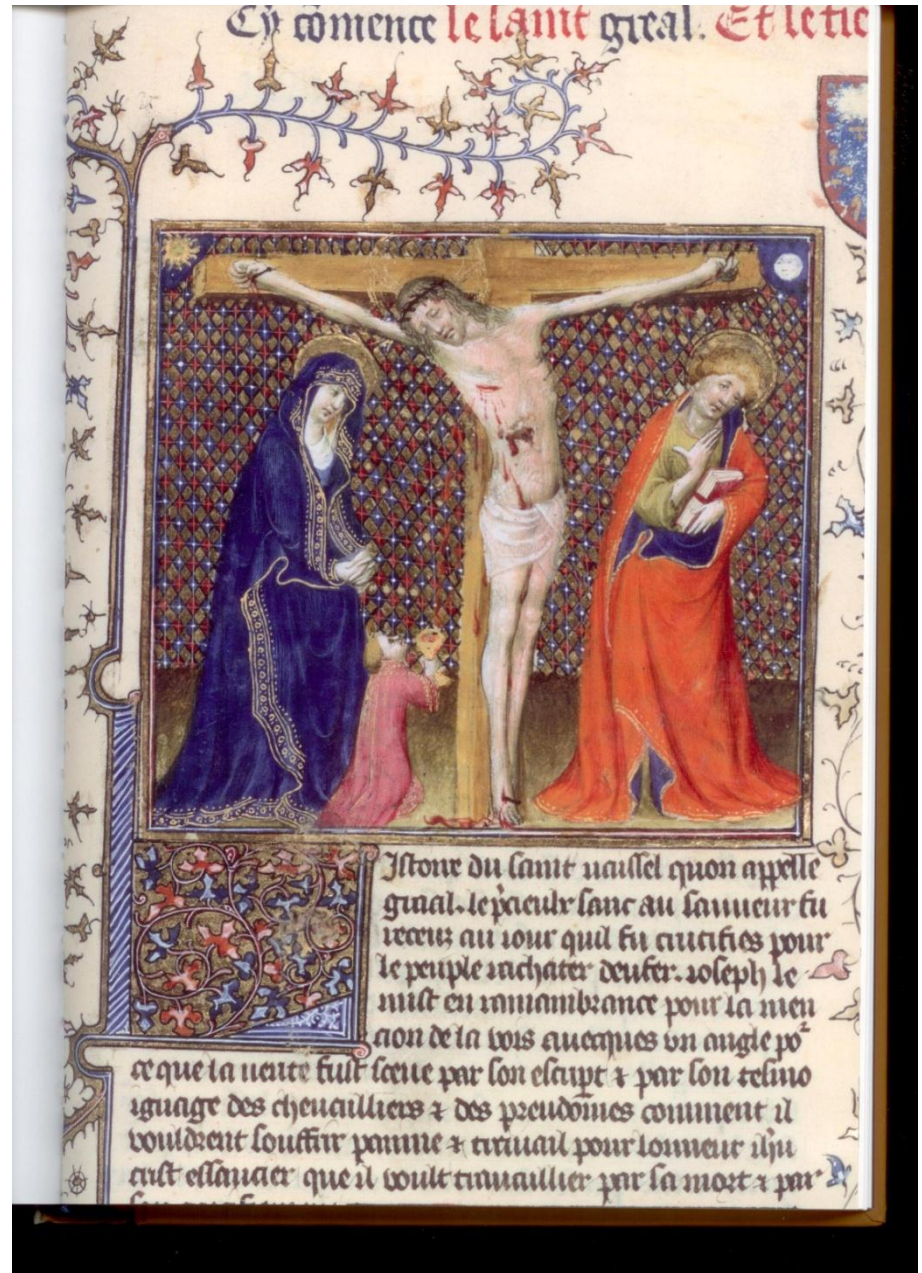 Cy cōmence le saint greal. Et le tie
Istoire du saint uaissel quon appelle
graal. le p̄cieulx sanc au sauueur fu
receuz au iour quil fu crucifiés pour
le peuple rachater denfer. ioseph le
mist en ramambrance pour la men
cion de la vois auecques vn angle po
ce que la uerite fust sceue par son escript & par son tesmo
ignage des cheualliers & des preudōmes comment il
vouldrent souffrir painne & trauail pour lonneur ihu
crist essaucier que il voult trauaillier par sa mort & par